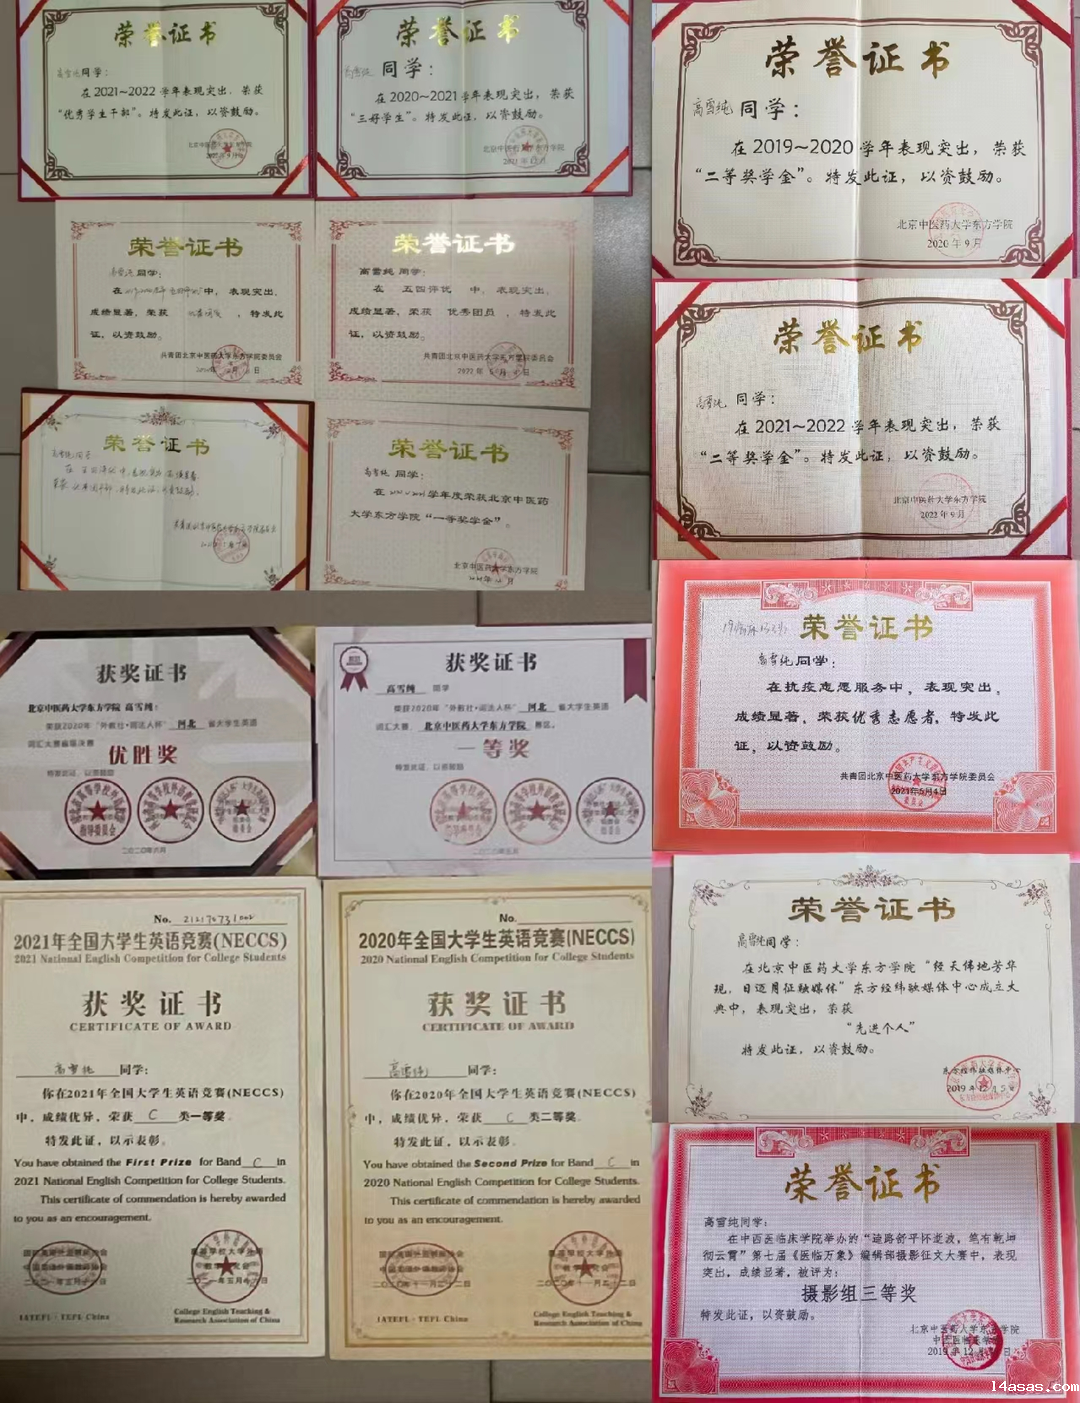 荣誉证书
高雪纯同学：
在2021~2022学年表现突出，荣获
“优秀学生干部”。特发此证，以资鼓励。
北京中医药大学东方学院
荣誉证书
高雪纯 同学：
在2020~2021学年表现突出，荣获
“三好学生”。特发此证，以资鼓励。
北京中医药大学东方学院
2021年12月
荣誉证书
高雪纯 同学：
在2019~2020学年表现突出，荣获
“二等奖学金”。特发此证，以资鼓励。
北京中医药大学东方学院
2020年9月
荣誉证书
高雪纯 同学：
在 中，表现突出，
成绩显著，荣获 ，特发此
证，以资鼓励。
共青团北京中医药大学东方学院委员会
荣誉证书
高雪纯 同学：
在 五四评优 中，表现突出，
成绩显著，荣获 优秀团员 ，特发此
证，以资鼓励。
共青团北京中医药大学东方学院委员会
2022年5月 日
荣誉证书
高雪纯 同学：
在2021~2022学年表现突出，荣获
“二等奖学金”。特发此证，以资鼓励。
北京中医药大学东方学院
2022年9月
荣誉证书
高雪纯同学
在五四评优中，表现突出，成绩显著，
荣获 ，特发此证，以资鼓励。
荣誉证书
高雪纯 同学：
在 学年度荣获北京中医药
大学东方学院“一等奖学金”。
北京中医药大学东方学院
荣誉证书
高雪纯同学：
在抗疫志愿服务中，表现突出，
成绩显著，荣获优秀志愿者，特发此
证，以资鼓励。
共青团北京中医药大学东方学院委员会
2021年5月4日
获奖证书
北京中医药大学东方学院 高雪纯：
荣获2020年“外教社·词达人杯” 河北 省大学生英语
词汇大赛省级决赛
优胜奖
特发此证，以资鼓励
二〇二〇年六月
获奖证书
高雪纯 同学
荣获2020年“外教社·词达人杯” 河北 省大学生英语
词汇大赛 北京中医药大学东方学院 赛区。
一等奖
特发此证，以资鼓励
二〇二〇年五月
荣誉证书
高雪纯同学：
在北京中医药大学东方学院“经天纬地芳华
现，日迈月征融媒体”东方经纬融媒体中心成立大
典中，表现突出，荣获
“先进个人”
特发此证，以资鼓励。
东方经纬融媒体中心
2019年12月5日
No. 
2021年全国大学生英语竞赛(NECCS)
2021 National English Competition for College Students
获奖证书
CERTIFICATE OF AWARD
高雪纯 同学：
你在2021年全国大学生英语竞赛(NECCS)
中，成绩优异，荣获 C 类一等奖。
特发此证，以示表彰。
You have obtained the First Prize for Band C in
2021 National English Competition for College Students.
This certificate of commendation is hereby awarded
to you as an encouragement.
IATEFL · TEFL China
College English Teaching &
Research Association of China
No.
2020年全国大学生英语竞赛(NECCS)
2020 National English Competition for College Students
获奖证书
CERTIFICATE OF AWARD
高雪纯 同学：
你在2020年全国大学生英语竞赛(NECCS)
中，成绩优异，荣获 C 类二等奖。
特发此证，以示表彰。
You have obtained the Second Prize for Band C in
2020 National English Competition for College Students.
This certificate of commendation is hereby awarded
to you as an encouragement.
二〇二〇年十一月二十二日
IATEFL · TEFL China
College English Teaching &
Research Association of China
荣誉证书
高雪纯同学：
在中西医临床学院举办的“迪路舒平怀逝波，笔有乾坤
彻云霄”第七届《医临万象》编辑部摄影征文大赛中，表现
突出，成绩显著，被评为：
摄影组三等奖
特发此证，以资鼓励。
北京中医药大学东方学院
中西医临床学院
2019年12月 日
14asas.com